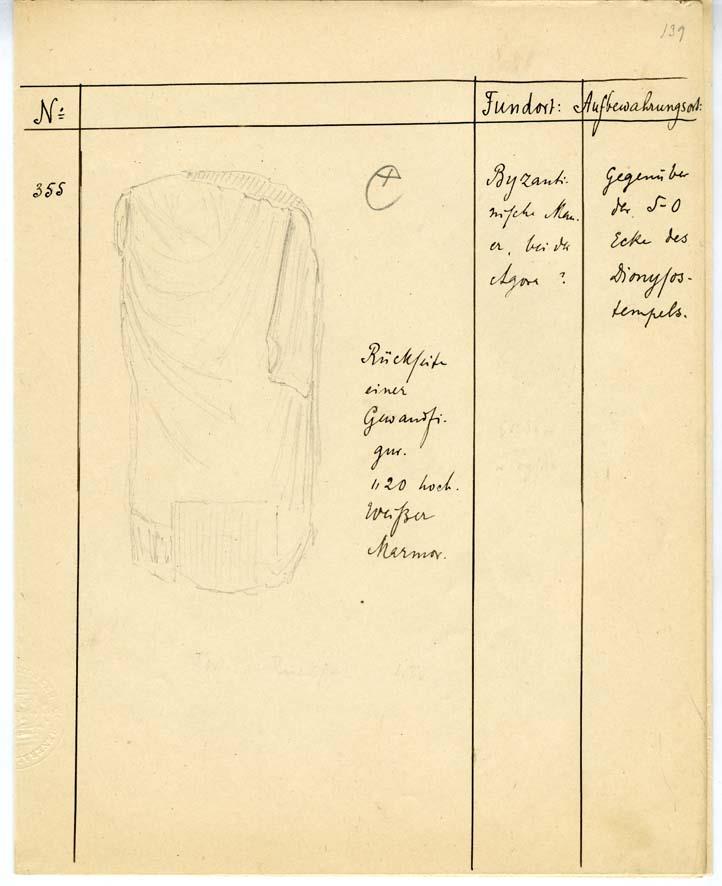 139
No: Fundort: Aufbewahrungsort:
355
Rückseite
einer
Gewandfi-
gur.
1,20 hoch.
Weißer
Marmor.
Byzanti-
nische Mau-
er, bei der
Agora ?
Gegenüber
der S-O
Ecke des
Dionysos-
tempels.